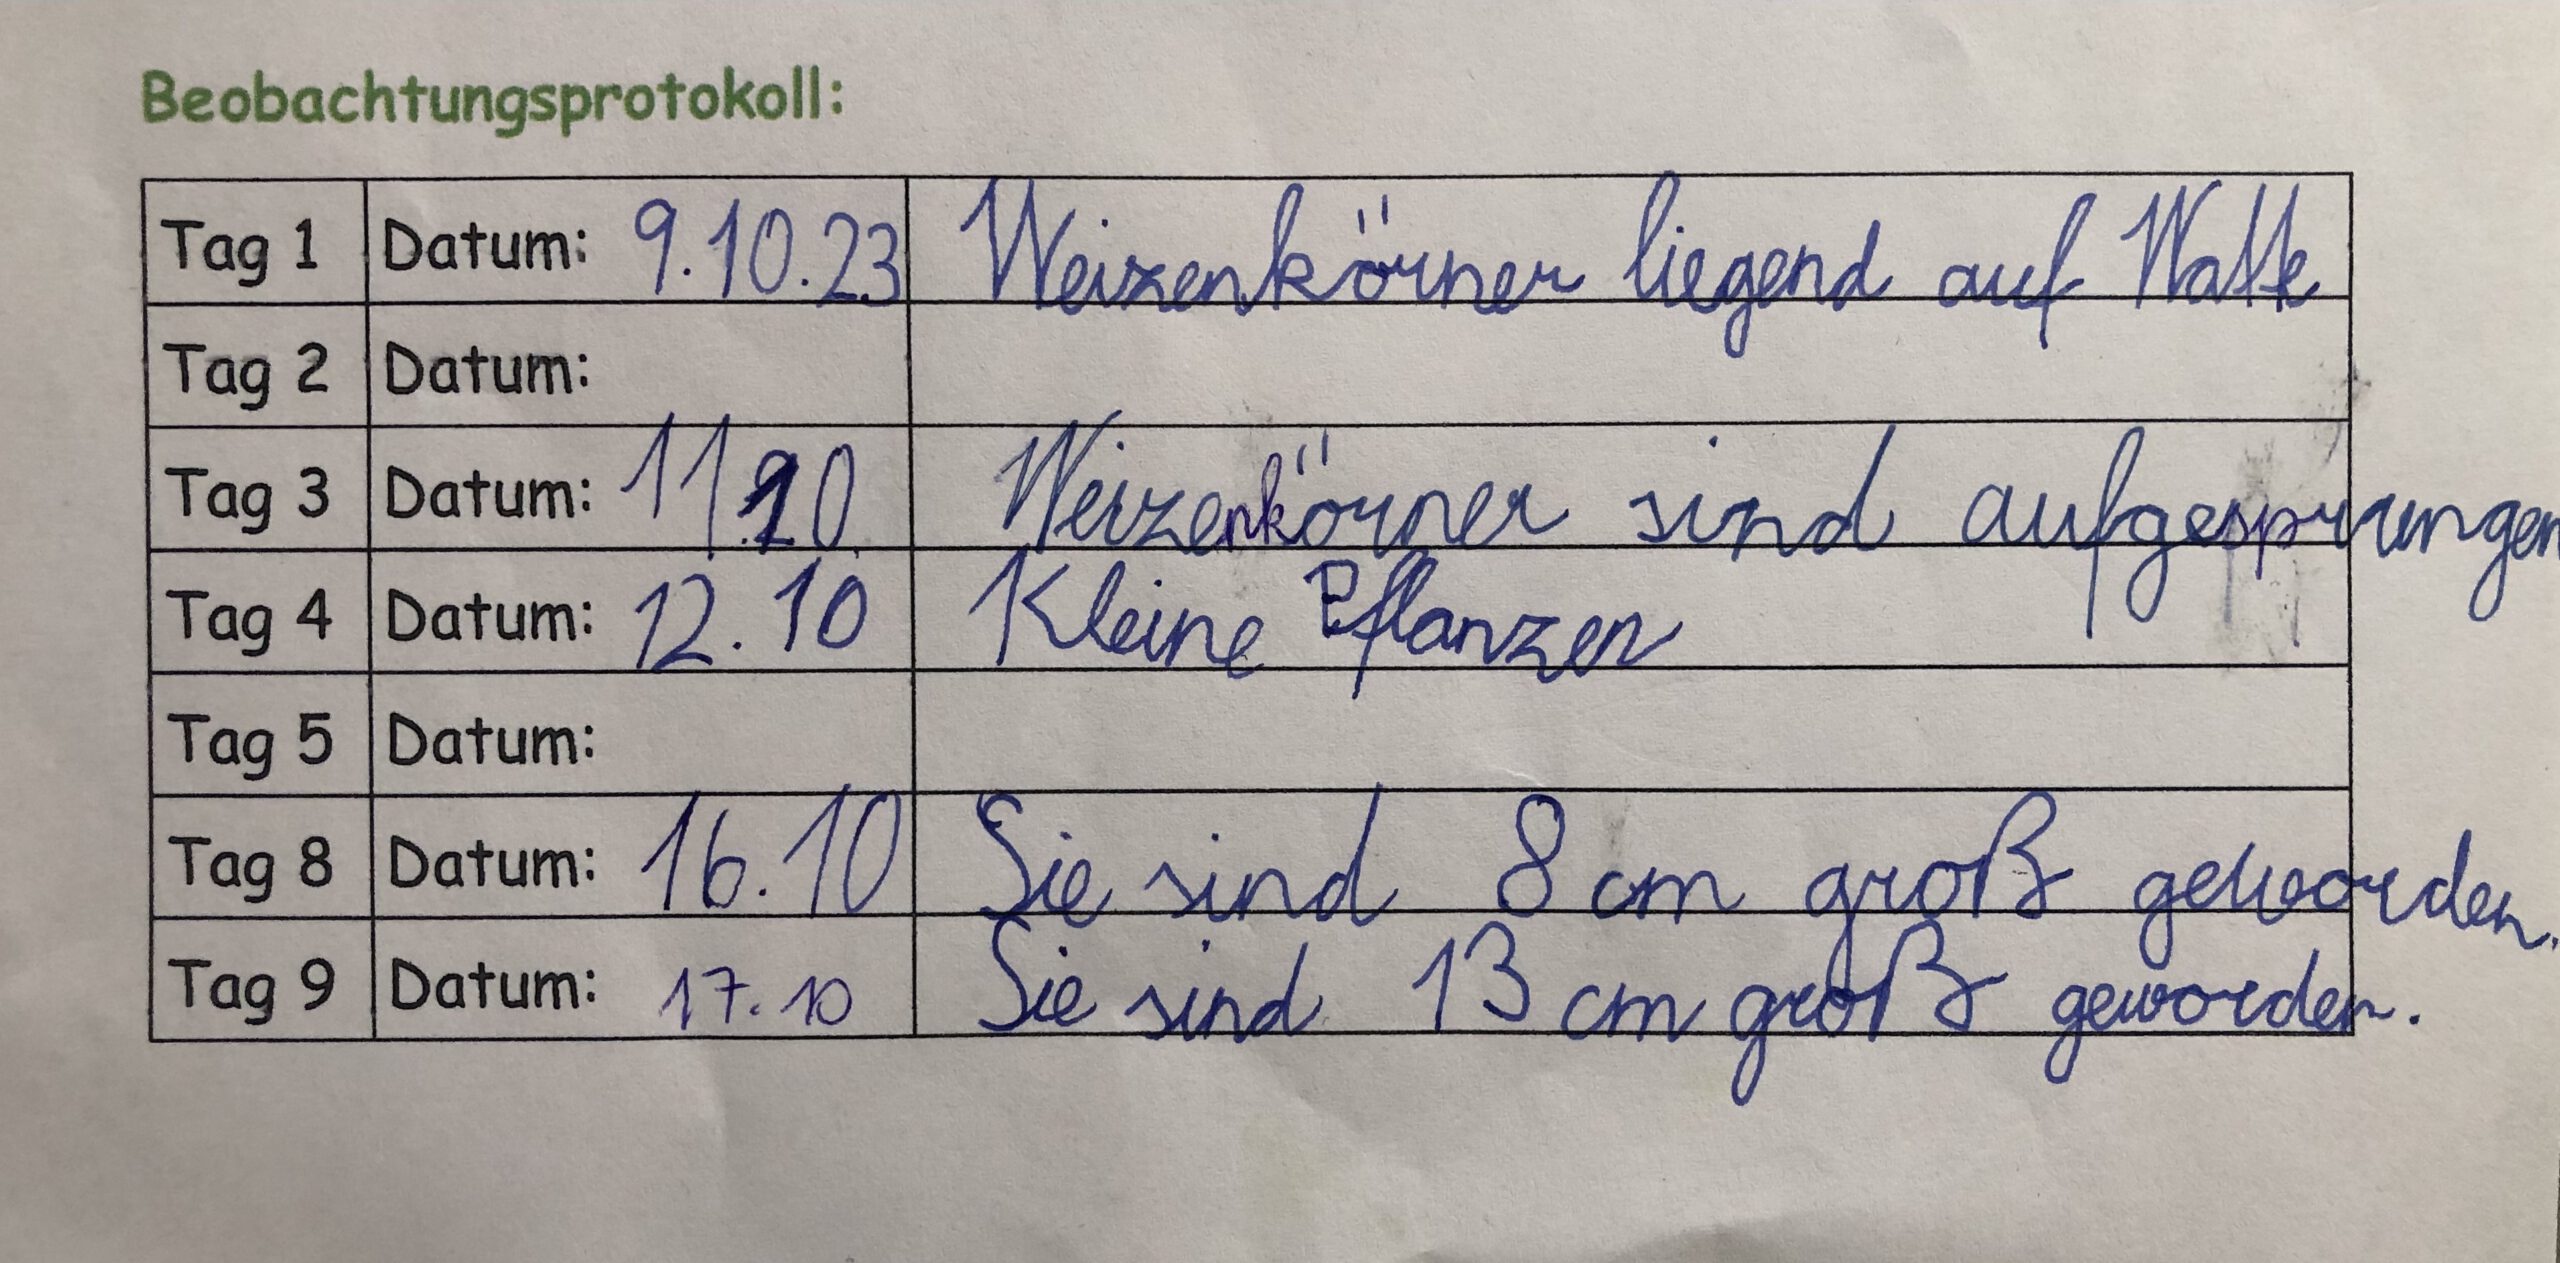 Beobachtungsprotokoll:
Tag 1 Datum: 9.10.23 Weizenkörner liegend auf Watte
Tag 2 Datum:
Tag 3 Datum: 11.10. Weizenkörner sind aufgesprungen
Tag 4 Datum: 12.10 Kleine Pflanzen
Tag 5 Datum:
Tag 8 Datum: 16.10 Sie sind 8 cm groß geworden.
Tag 9 Datum: 17.10 Sie sind 13 cm groß geworden.